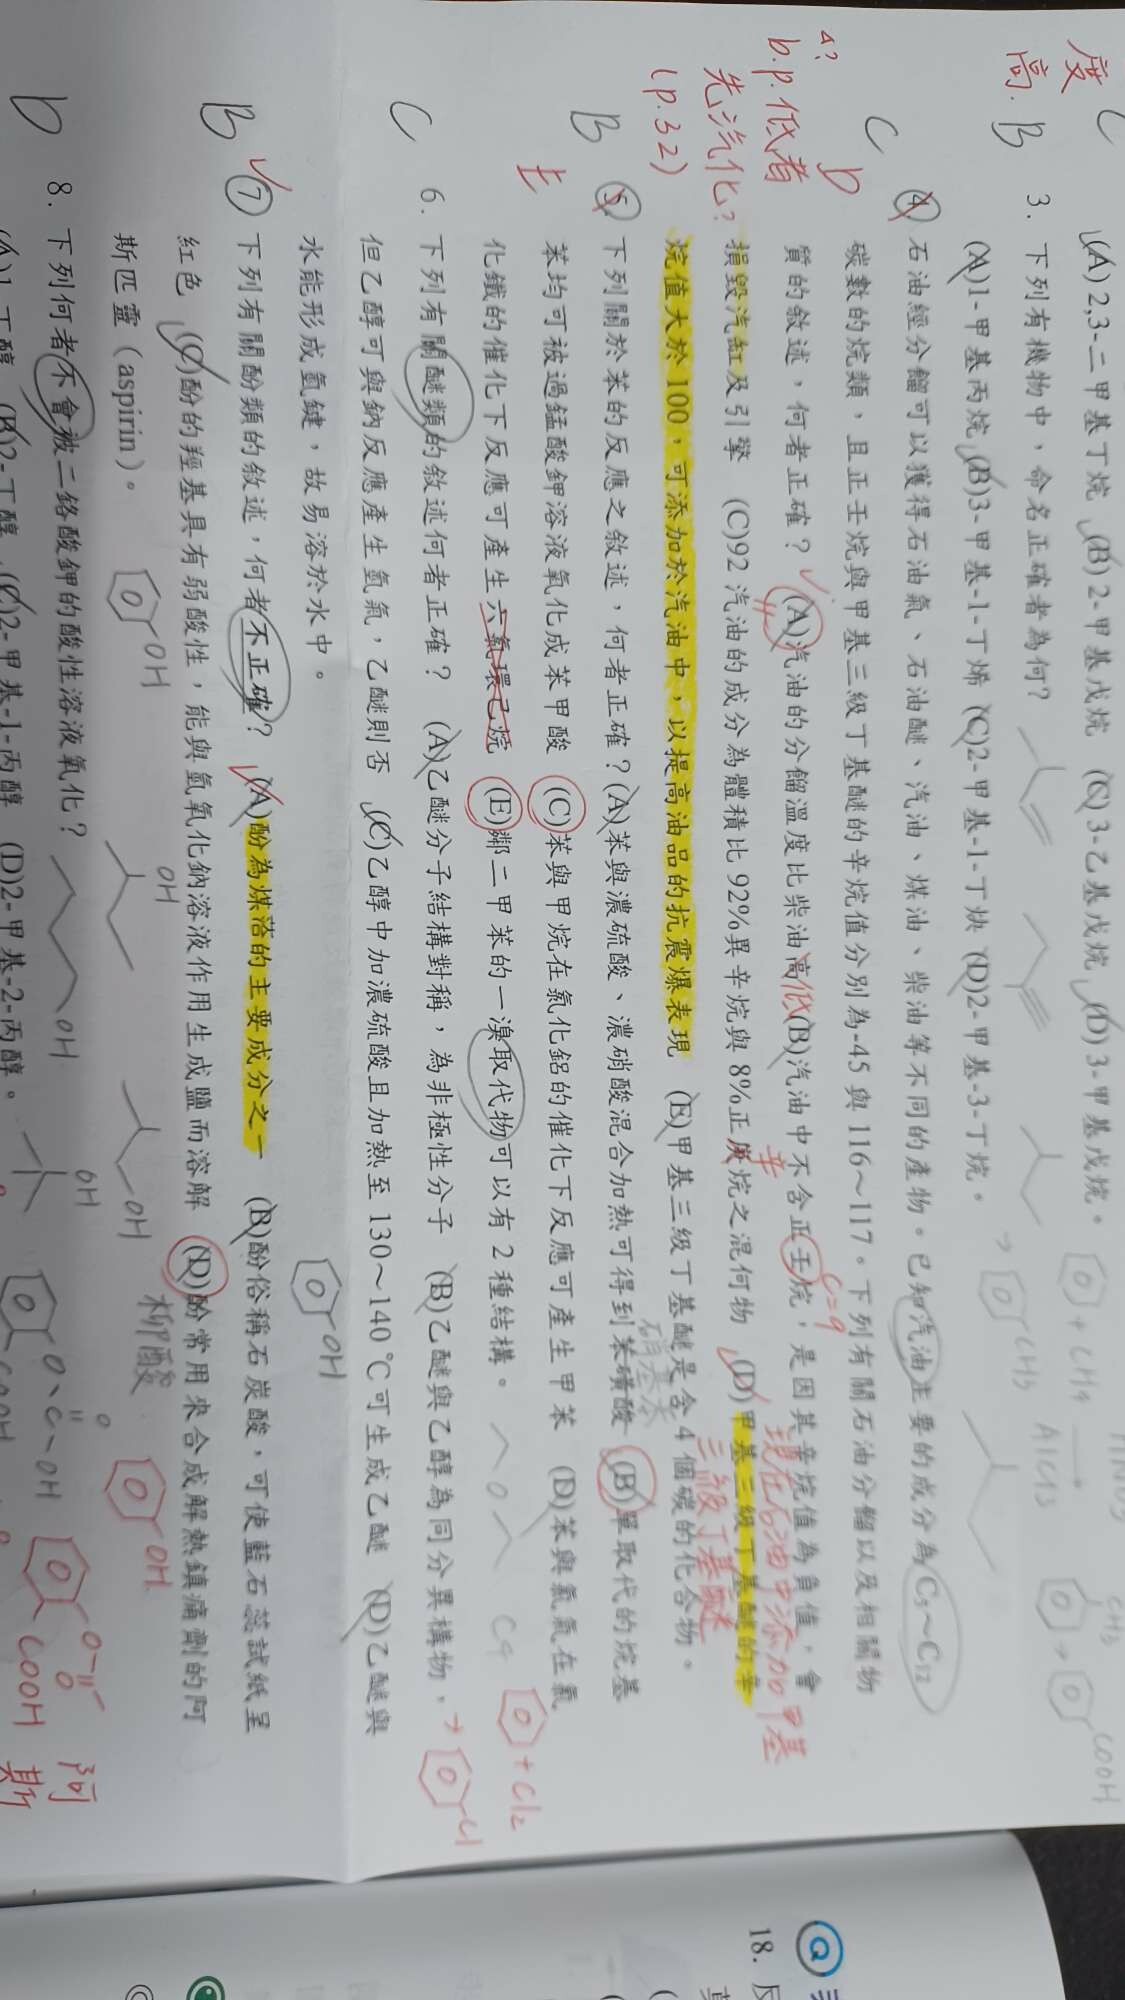 度 C
(A) 2,3-二甲基丁烷 (B) 2-甲基戊烷 (C) 3-乙基戊烷 (D) 3-甲基戊烷。
高. B
3. 下列有機物中，命名正確者為何?
(A)1-甲基丙烷 (B)3-甲基-1-丁烯 (C)2-甲基-1-丁炔 (D)2-甲基-3-丁烷。
+ CH4
AlCl3
CH3
CH3
COOH
C
4 石油經分餾可以獲得石油氣、石油醚、汽油、煤油、柴油等不同的產物。已知汽油主要的成分為C5~C12
碳數的烷類，且正壬烷與甲基三級丁基醚的辛烷值分別為-45 與 116～117。下列有關石油分餾以及相關物
D
質的敘述，何者正確？ (A)汽油的分餾溫度比柴油高 (B)汽油中不含正壬烷，是因其辛烷值為負值，會
低
C=9
4?
b.p.低者
先汽化?
(p.32)
損毀汽缸及引擎 (C)92 汽油的成分為體積比 92%異辛烷與 8%正庚烷之混何物 (D)甲基三級丁基醚的辛
辛
現在石油中添加甲基
三級丁基醚
烷值大於 100，可添加於汽油中，以提高油品的抗震爆表現 (E)甲基三級丁基醚是含 4 個碳的化合物。
B
E
5 下列關於苯的反應之敘述，何者正確？(A)苯與濃硫酸、濃硝酸混合加熱可得到苯磺酸 (B)單取代的烷基
硝基苯
苯均可被過錳酸鉀溶液氧化成苯甲酸 (C)苯與甲烷在氯化鋁的催化下反應可產生甲苯 (D)苯與氯氣在氯
化鐵的催化下反應可產生六氯環己烷 (E)鄰二甲苯的一溴取代物可以有 2 種結構。
O C4
+ Cl2
→ Cl
C
6. 下列有關醚類的敘述何者正確？ (A)乙醚分子結構對稱，為非極性分子 (B)乙醚與乙醇為同分異構物，
但乙醇可與鈉反應產生氫氣，乙醚則否 (C)乙醇中加濃硫酸且加熱至 130～140 °C可生成乙醚 (D)乙醚與
水能形成氫鍵，故易溶於水中。
OH
B
7 下列有關酚類的敘述，何者不正確？ (A)酚為煤溚的主要成分之一 (B)酚俗稱石炭酸，可使藍石蕊試紙呈
紅色 (C)酚的羥基具有弱酸性，能與氫氧化鈉溶液作用生成鹽而溶解 (D)酚常用來合成解熱鎮痛劑的阿
斯匹靈（aspirin）。
OH
OH
OH
柳酸
OH
D
8. 下列何者不會被二鉻酸鉀的酸性溶液氧化？
OH
OH
COOH
COOH
阿
斯
(A)1-丁醇 (B)2-丁醇 (C)2-甲基-1-丙醇 (D)2-甲基-2-丙醇。
Q
18. 反